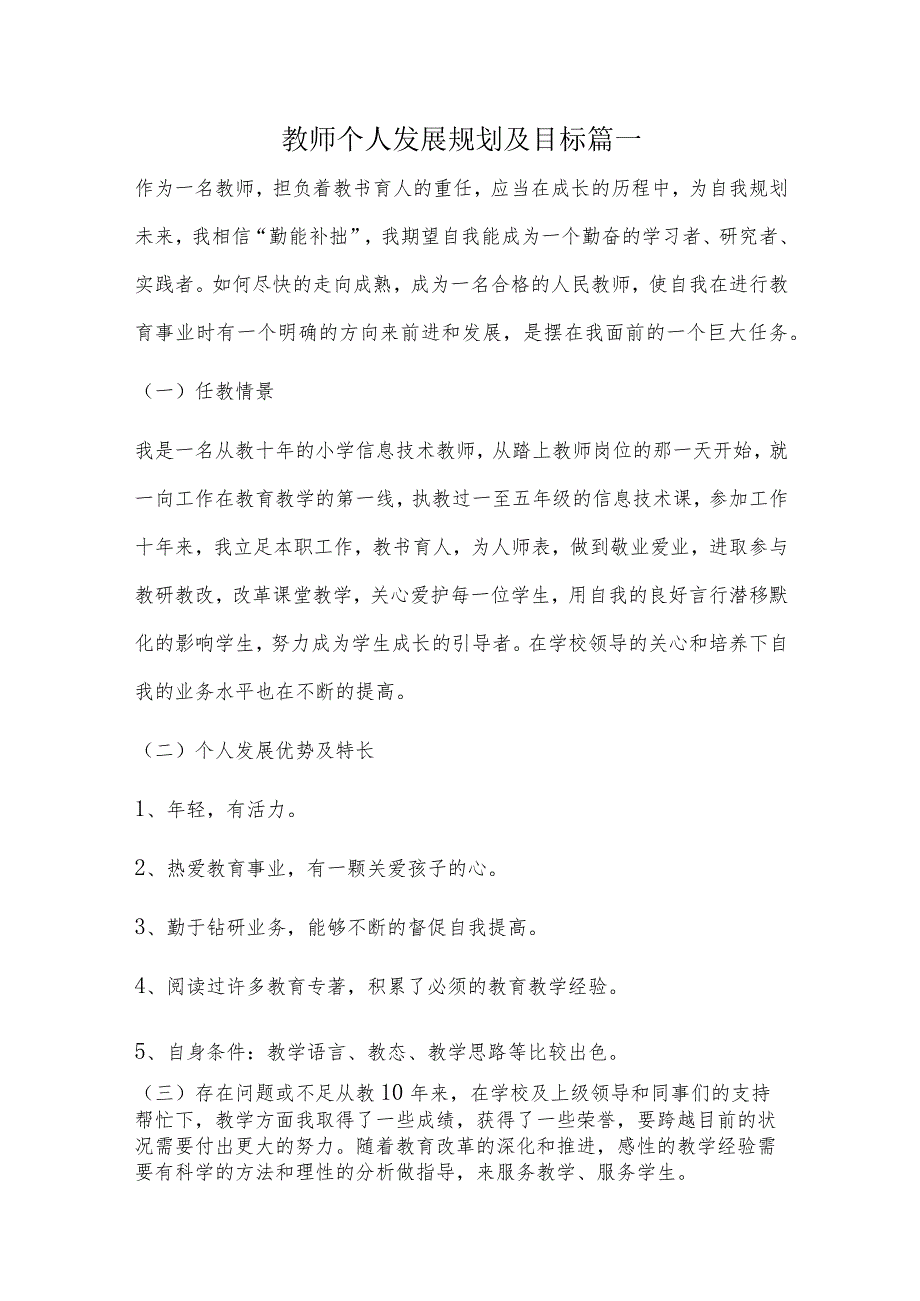 教师个人发展规划及目标篇一
作为一名教师，担负着教书育人的重任，应当在成长的历程中，为自我规划
未来，我相信“勤能补拙”，我期望自我能成为一个勤奋的学习者、研究者、
实践者。如何尽快的走向成熟，成为一名合格的人民教师，使自我在进行教
育事业时有一个明确的方向来前进和发展，是摆在我面前的一个巨大任务。
（一）任教情景
我是一名从教十年的小学信息技术教师，从踏上教师岗位的那一天开始，就
一向工作在教育教学的第一线，执教过一至五年级的信息技术课，参加工作
十年来，我立足本职工作，教书育人，为人师表，做到敬业爱业，进取参与
教研教改，改革课堂教学，关心爱护每一位学生，用自我的良好言行潜移默
化的影响学生，努力成为学生成长的引导者。在学校领导的关心和培养下自
我的业务水平也在不断的提高。
（二）个人发展优势及特长
1、年轻，有活力。
2、热爱教育事业，有一颗关爱孩子的心。
3、勤于钻研业务，能够不断的督促自我提高。
4、阅读过许多教育专著，积累了必须的教育教学经验。
5、自身条件：教学语言、教态、教学思路等比较出色。
（三）存在问题或不足从教10年来，在学校及上级领导和同事们的支持
帮忙下，教学方面我取得了一些成绩，获得了一些荣誉，要跨越目前的状
况需要付出更大的努力。随着教育改革的深化和推进，感性的教学经验需
要有科学的方法和理性的分析做指导，来服务教学、服务学生。